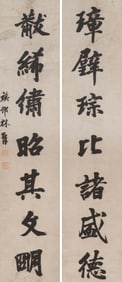 璋璧琮比諸盛德
黻絺繡昭其文明
邨林